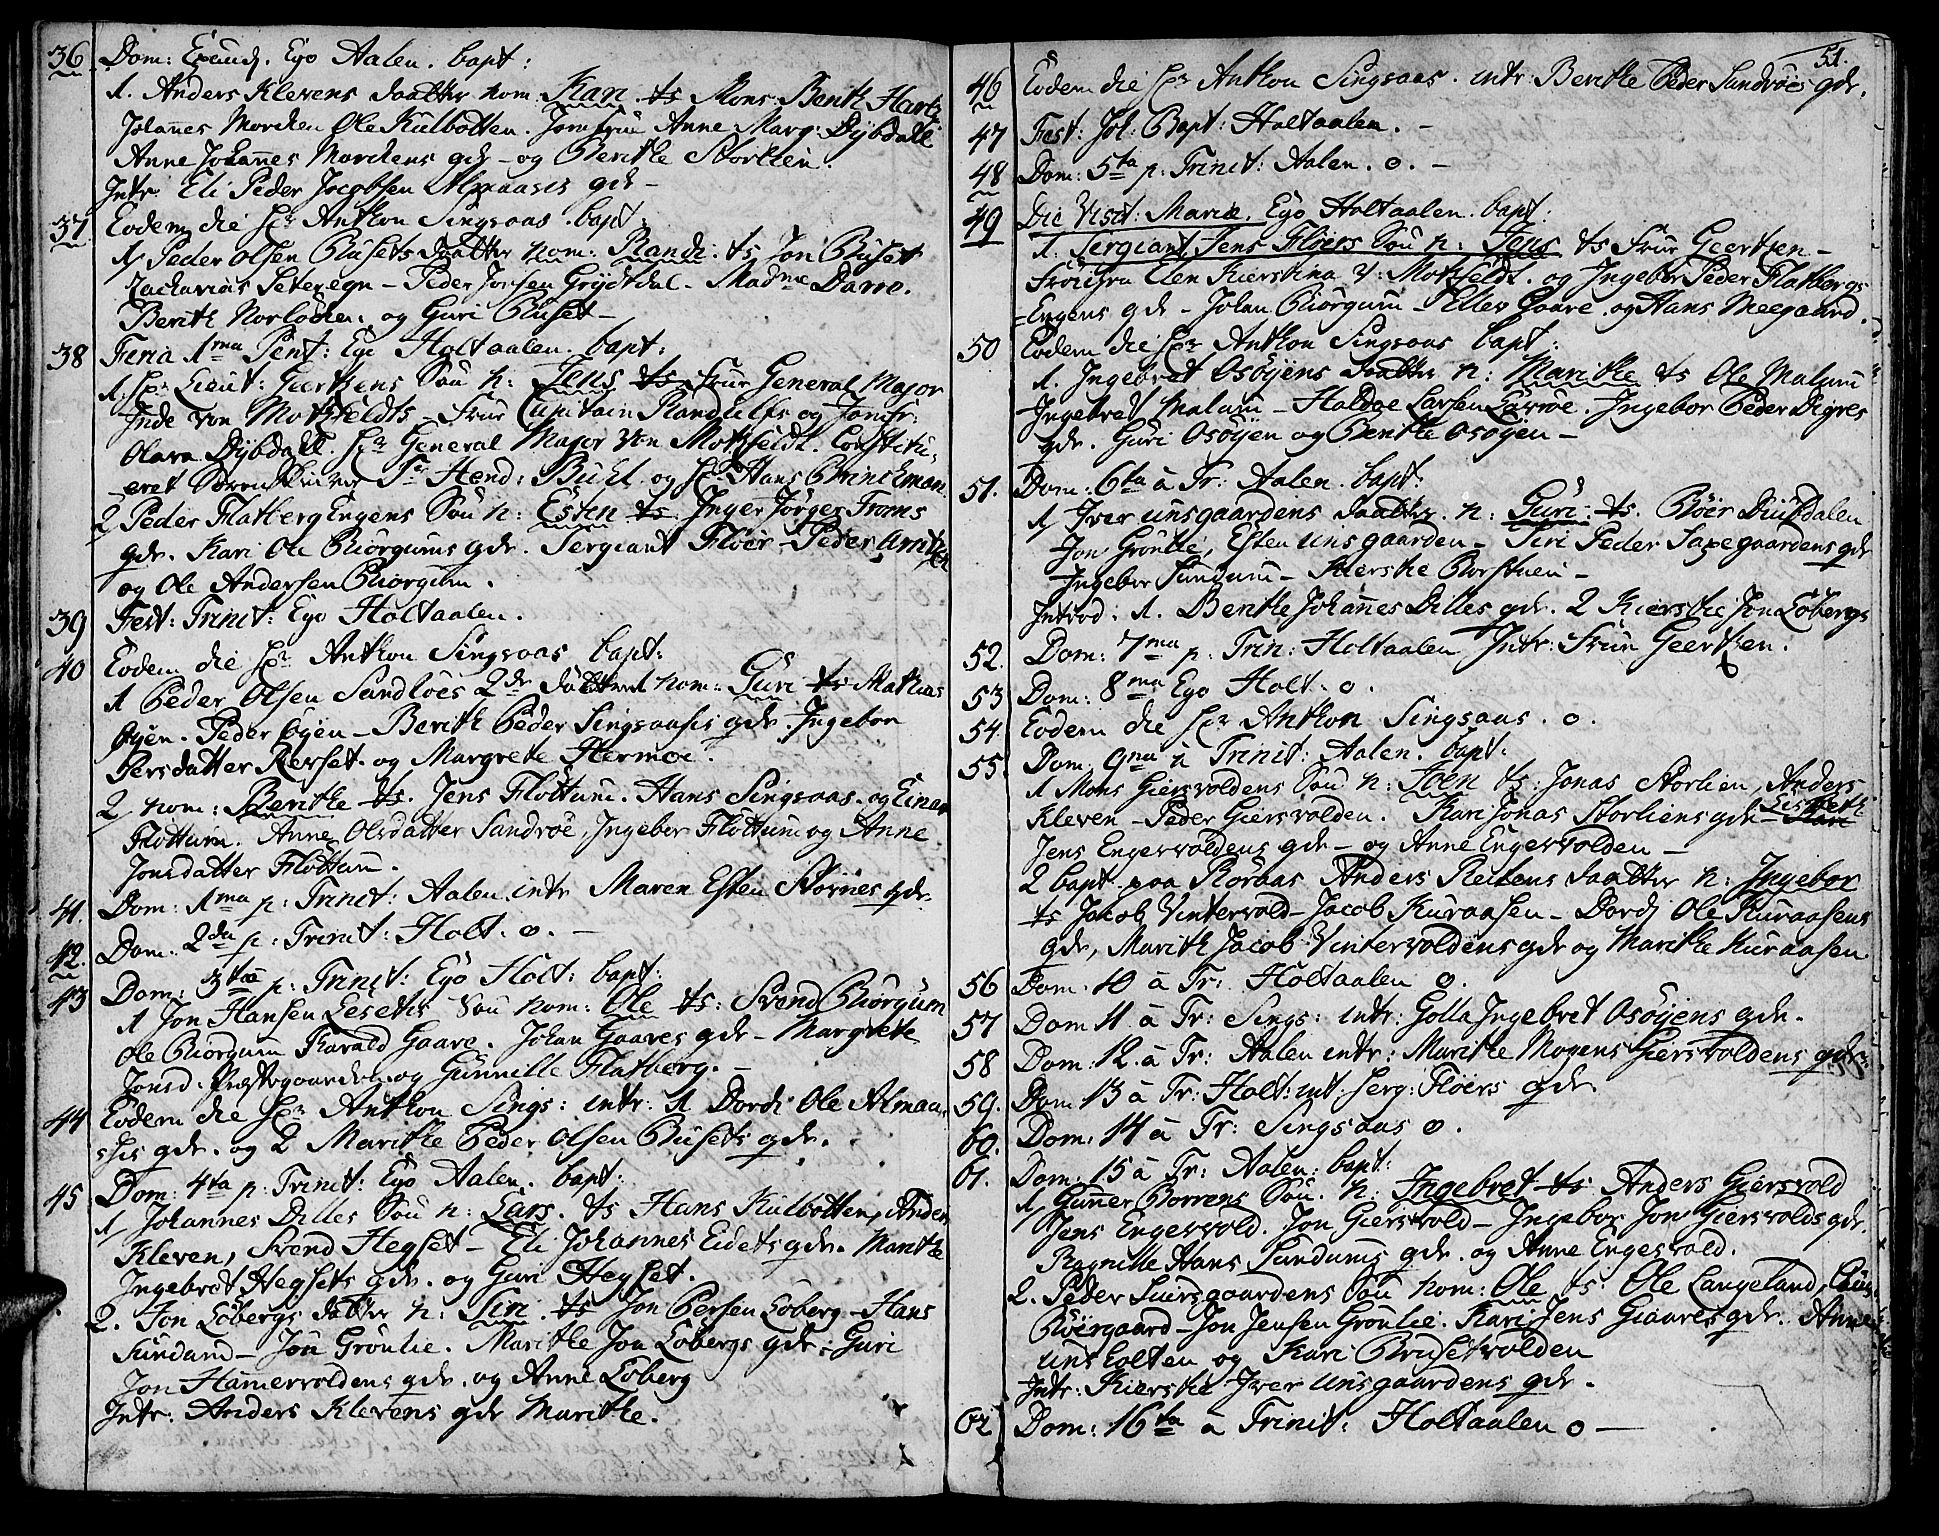 36 Dom: Exaudj. Ego Aalen. bapt:
1. Anders Klevens Daatter nom. Kari ts Mons. Berith Hartz
Johannes Morchen Ole Kulbotten. Jomfrue Anne Marg: Dybdall
Anne Johannes Morchens gdr - og Berithe Storlien.
Intr: Eli Peder Jacobsen Almaases gdr -
37 Eodem die Hr Anthon Singsaas. bapt:
1 Peder Olsen Busets Daatter nom: Randi. ts Jon Buset
Zacharias Seteregn - Peder Jonsen Grytdal - Madme Darre.
Berith Norløchen. og Guri Buset -
38 Feria 1ma Pent: Ego Holtaalen. bapt:
1. Hr Lieut: Geertzens Søn n: Jens ts Frue General Major
Inde von Motzfeldts - Frue Capitain Randulfs og Jomfr:
Olava Dybdall. Hr General Major von Motzfeldt. Constitu-
eret Sorenskriver Sr Hend: Buhl. og Hr Hans Brinchman
2 Peder Flatberg Engens Søn n: Esten ts. Inger Jørgen Froms
gdr. Kari Ole Biørgums gdr. Sergiant Fløer - Peder
og Ole Andersen Biørgum.
39 Fest: Trinit: Ego Holtaalen.
40 Eodem die Hr Anthon Singsaas bapt:
1 Peder Olsen Sandrøes 2de Døttre nom: Guri ts Mathias
Øyen. Peder Øyen - Berith Peder Singsaasis gdr. Ingebor
Persdatter Rerset. og Margrete Hermoe.
2 nom: Berithe ts. Jens Flottum. Hans Singsaas. og Einar
Flottum. Anne Olsdatter Sandrøe, Ingebor Flottum og Anne
Jonsdatter Flottum.
41. Dom: 1ma p: Trinit: Aalen. intr Maren Esten Storøes gdr.
42. Dom: 2da p: Trinit: Holt. o. -
43 Dom: 3tia p: Trinit: Ego Holt: bapt:
1 Jon Hansen Leseths Søn nom: Ole ts: Svend Biørgum
Ole Biørgum Harald Gaare. Johan Gaares gdr - Margrete
Jonsd. Præstegaarden og Gunnille Flatberg. -
44 Eodem die Hr Anthon Sings: intr. 1 Dordi Ole Almaa-
sis gdr. og 2 Marithe Peder Olsen Busets gdr.
45 Dom: 4ta p: Trinit: Ego Aalen. bapt:
1 Johannes Dilles Søn n: Lars. ts Hans Kulbotten, Anders
Kleven, Svend Hegset - Eli Johannes Eidets gdr. Marithe
Ingebret Hegsets gdr. og Guri Hegset.
2. Jon Løbergs Datter n: Siri. ts Jon Persen Løberg - Hans
Sundum - Jon Grønlie. Marithe Jon Løbergs gdr: Guri
Jon Hamervoldens gdr. og Anne Løberg
Intr: Anders Klevens gdr Marithe.
51.
46 Eodem die Hr Anthon Singsaas. intr Berithe Peder Sundrøes gdr.
47 Fest: Joh: Bapt: Holtaalen. -
48 Dom: 5ta p: Trinit: Aalen. o. -
49 Die Visit: Mariæ. Ego Holtaalen. bapt:
1. Sergiant Jens Fløers Søn n: Jens ts Frue Geertzen -
Frøigra Elen Kierstina v: Motzfeldt. og Ingebor Peder Flatbergs
Engens gdr - Johan Biørgum - Peller Gaare. og Hans Meegaard.
50 Eodem die Hr Anthon Singsaas bapt:
1. Ingebret Osøyens Datter n: Marithe ts Ole Malum
Ingebret Malum - Haldoe Larsen Larøe. Ingebor Peder Digres
gdr. Guri Osøyen og Berithe Osøyen -
51. Dom: 6ta à Tr: Aalen. bapt:
1 Iver Unsgaardens Daatter. n: Guri. ts. Børe Diupdalen
Jon Grønlie, Esten Unsgaarden - Siri Peder Saxegaardens gdr
Ingebor Sundum - Kierste Borstuen -
Introd: 1. Berithe Johannes Dilles gdr. 2 Kierstie Jon Løbergs
52. Dom: 7ma p: Trin: Holtaalen Intr: Frue Geertzen.
53 Dom: 8ma Ego Holt. o.
54. Eodem die Hr Anthon Singsaas. o.
55. Dom. 9na à Trinit: Aalen. bapt:
1 Mons Giersvoldens Søn n: Joen ts: Jonas Storlien, Anders
Kleven - Peder Giersvolden. Kari Jonas Storliens gdr - Lisbeth
Jens Engesvoldens gdr - og Anne Engesvolden -
2 bapt. paa Røraas Anders Reitens Daatter n: Ingebor
ts Jacob Vintervold - Jacob Kuraasen - Dordj Ole Kuraasens
gdr, Marith Jacob Vintervoldens gdr og Marithe Kuraasen.
56 Dom: 10 à Tr: Holtaalen o.
57 Dom 11 à Tr: Sings: intr: Golla Ingebret Osøyens gdr.
58 Dom: 12 à Tr: Aalen intr: Marithe Mogens Giersvoldens gdr.
59. Dom 13 à Tr: Holt: int. Serg: Fløers gdr
60. Dom: 14 à Tr: Singsaas o.
61. Dom: 15 à Tr: Aalen: bapt:
1 Gunner Borrens Søn. n. Ingebret ts Anders Giersvold
Jens Engesvold. Jon Giersvold - Ingebor Jon Giersvolds gdr.
Ragnille Hans Sundums gdr. og Anne Engesvold.
2. Peder Luersgaardens Søn nom: Ole ts Ole Langeland,
Biørgaard - Jon Jensen Grønlie. Kari Jens Giaares gdr. Anne
Unsholten og Kari Brusetvolden
Intr: Kierstie Iver Unsgaardens gdr.
62 Dom: 16ta à Trinit: Holtaalen o -